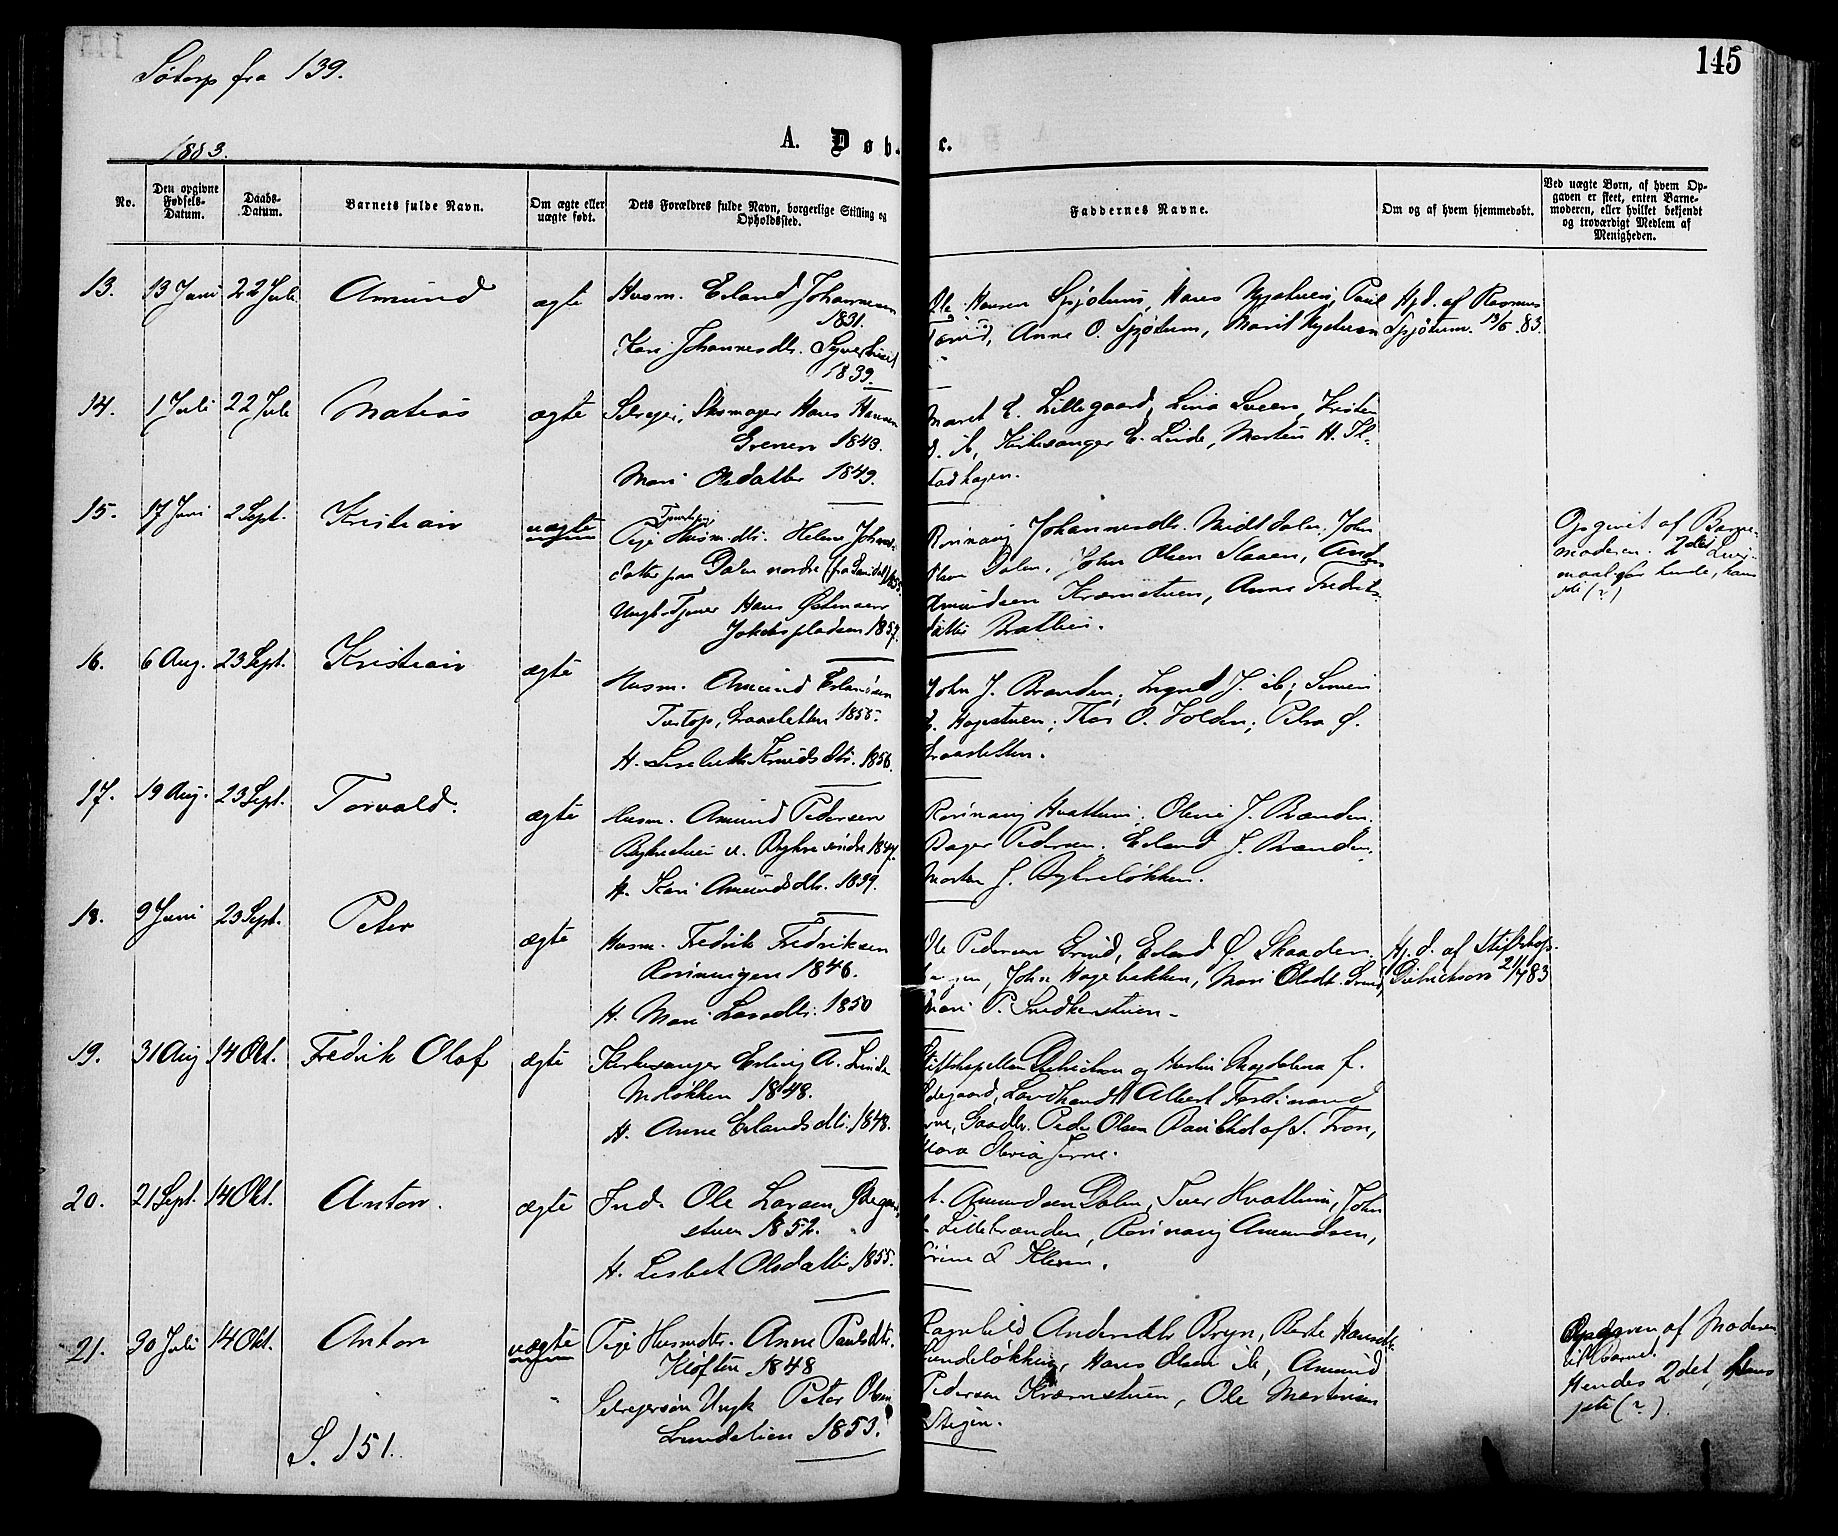 Sødorp fra 139.
145
1883.
A. Døb- c.
No.
Den opgivne Fødsels-Datum.
Daabs-Datum.
Barnets fulde Navn.
Om ægte eller uægte født.
Dets Forældres fulde Navn, borgerlige Stilling og Opholdssted.
Faddernes Navne.
Om og af hvem hjemmedøbt.
Ved uægte Børn, af hvem Op-
gaven er skeet, enten Barne-
moderen, eller hvilket bekjendt
og troværdigt Medlem af
Menigheden.
13. 13 Juni 22 Juli Amund ægte Husm. Erland Johannesen
1831.
Kari Johannesdtr.
1839.
Hansen Spjøtum, Hans Nystuen, Paul
Anne O. Spjøtum, Marit Nystuen
Hjd. af Rasmus
Spjøtum. 13/6 83.
14. 1 Juli 22 Juli Matias ægte Selvejer, Skomager Hans Hansen
Grenen 1843.
Mari Olsdatter 1849.
Marit E. Lillegaard, Lina Sveen, Kristen
ib, Kirkesanger E. Linde, Morten H.
stadhagen.
15. 17 Juni 2 Sept. Kristian uægte Pige Husm.dtr. Helene Johans-
datter paa Dalen nordre
Ungk. Tjener Hans Østensen
Jokobspladsen 1857.
Rønnaug Johannesdtr. Midtdalen, John
Olsen Dalen, John Olsen Slaaen,
Amundsen Kræmstuen, Anne Fredriks-
datter Bratlien.
Opgivet af Barne-
moderen. 2det Leier-
maal for hende, hans
1ste (?)
16. 6 Aug. 23 Sept. Kristian ægte Husm. Amund Erlandsen
1855.
H. Lisebeth Knudsdtr. 1856.
John J. Brænden, Ingrid J. ib;
Hagestuen; Kari O. Volden; Petra Ø.
17. 19 Aug. 23 Sept. Torvald. ægte Husm. Amund Pedersen
Bykrestuen u. Bykre søndre 1847.
H. Kari Amundsdtr. 1839.
Rønnaug Hvattum, Oline J. Brænden,
Pedersen. Erland J. Brænden,
Morten J. Bykreløkken.
18. 9 Juni 23 Sept. Peter ægte Husm. Fredrik Fredriksen
Rønningen 1846.
H. Mari Larsdtr. 1850
Ole Pedersen Grind, Erland Ø. Skaaden
John Hagebakken, Mari Olsdtr.
Mari P.
Hj.d. af Stiftskap.
Dietrichson 21/7 83
19. 31 Aug 14 Okt. Fredrik Olaf ægte Kirkesanger Erling A. Linde
Moløkken 1848.
H. Anne Erlandsdtr. 1848.
Stiftskapellan Dietrichson og Hustru Magdalena f.
Ødegaard, Landhandl. Albert Ferdinand
Gaardbr. Peder Olsen
Olevia
20. 21 Sept. 14 Okt. Anton. ægte Ind. Ole Larsen
stuen 1852.
H. Lisbet Olsdatter 1855.
Amundsen Dalen, Iver Hvattum, John
Lillebrænden, Rønnaug Amundsen,
21. 30 Juli 14 Okt. Anton uægte Pige Husmdtr. Anne Paulsdtr.
Kløften 1848
Selvejersøn Ungk. Peter Olsen
Lundelien 1853.
Ragnhild Andersdtr Bryn,
Lundeløkken, Hans Olsen ib, Amund
Pedersen Kræmstuen, Ole Martinsen
Stegen.
Opgaven af Moderen
til Barnet.
Hendes 2det, hans
1ste (?)
S. 151.